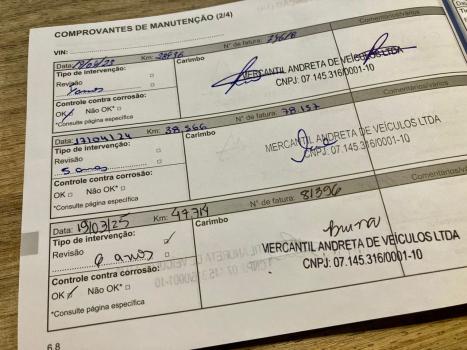 COMPROVANTES DE MANUTENÇÃO (2/4)
VIN:
Data: Km: N° de fatura: Comentários/vários
Tipo de intervenção: Carimbo
Revisão
4 anos
Controle contra corrosão:
OK Não OK*
*Consulte página específica
MERCANTIL ANDRETA DE VEÍCULOS LTDA
CNPJ: 07.145.316/0001-10
Data: 17/04/24 Km: 38.566 N° de fatura: 78.157 Comentários/vários
Tipo de intervenção: Carimbo
Revisão
5 anos
Controle contra corrosão:
OK Não OK*
*Consulte página específica
MERCANTIL ANDRETA DE VEÍCULOS LTDA
CNPJ: 07.145.316/0001-10
Data: 19/03/25 Km: 47.714 N° de fatura: 81396 Comentários/vários
Tipo de intervenção: Carimbo
Revisão
6 anos
Controle contra corrosão:
OK Não OK*
*Consulte página específica
MERCANTIL ANDRETA DE VEÍCULOS LTDA
CNPJ: 07.145.316/0001-10
6.8